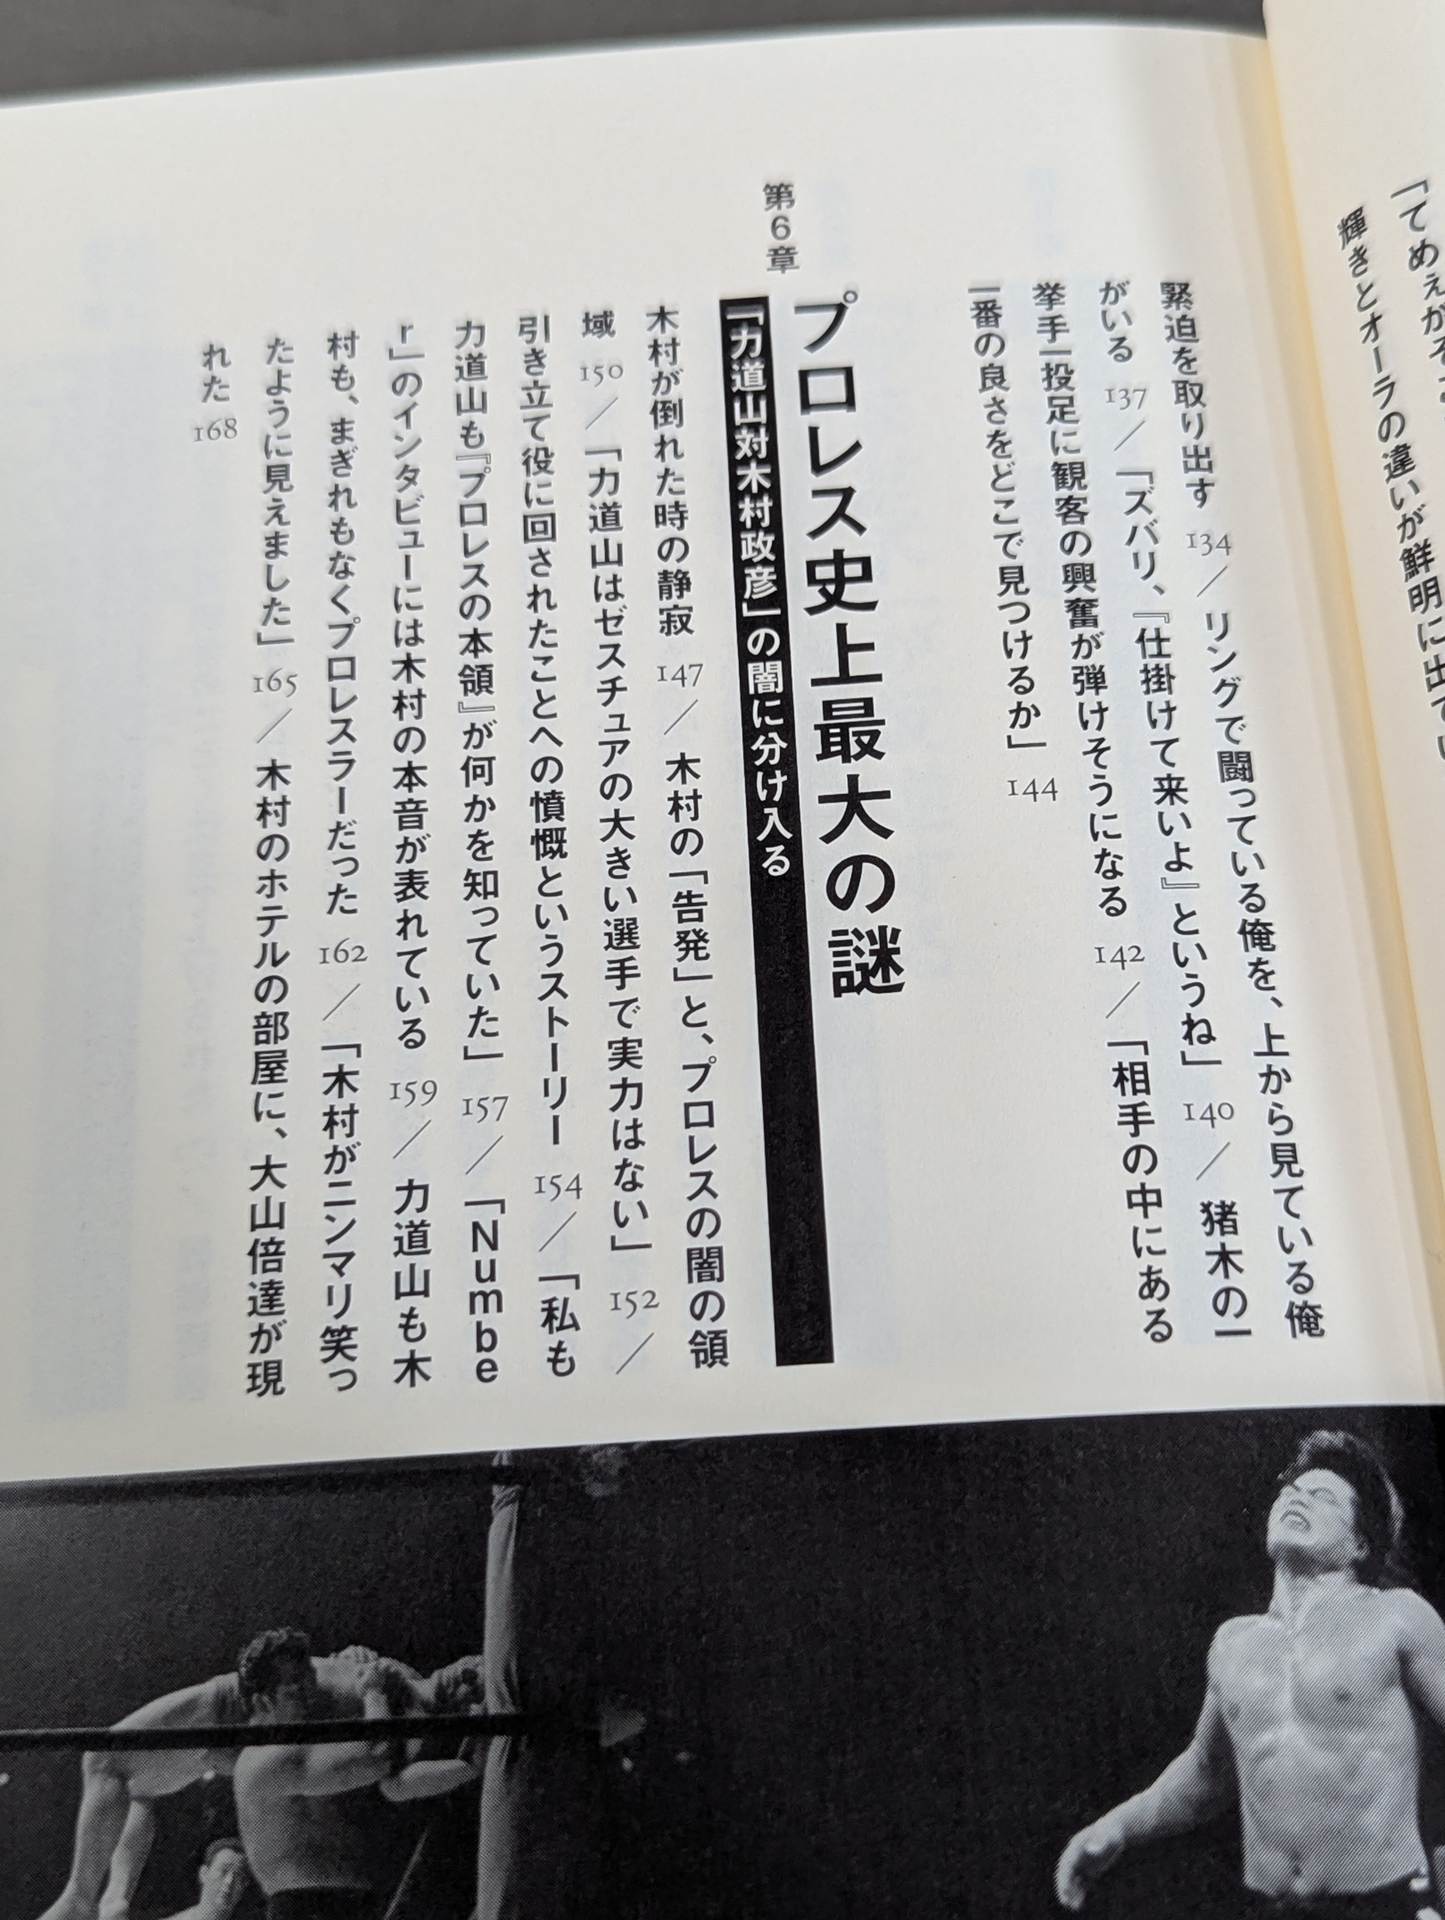 「てめえが
輝きとオーラの違いが鮮明に出て
緊迫を取り出す 134／リングで闘っている俺を、上から見ている俺
がいる 137／「ズバリ、『仕掛けて来いよ』というね」 140／猪木の一
挙手一投足に観客の興奮が弾けそうになる 142／「相手の中にある
一番の良さをどこで見つけるか」 144
第6章
プロレス史上最大の謎
「力道山対木村政彦」の闇に分け入る
木村が倒れた時の静寂 147／木村の「告発」と、プロレスの闇の領
域 150／「力道山はゼスチュアの大きい選手で実力はない」 152／
引き立て役に回されたことへの憤慨というストーリー 154／「私も
力道山も『プロレスの本領』が何かを知っていた」 157／「Numbe
r」のインタビューには木村の本音が表れている 159／力道山も木
村も、まぎれもなくプロレスラーだった 162／「木村がニンマリ笑っ
たように見えました」 165／木村のホテルの部屋に、大山倍達が現
れた 168